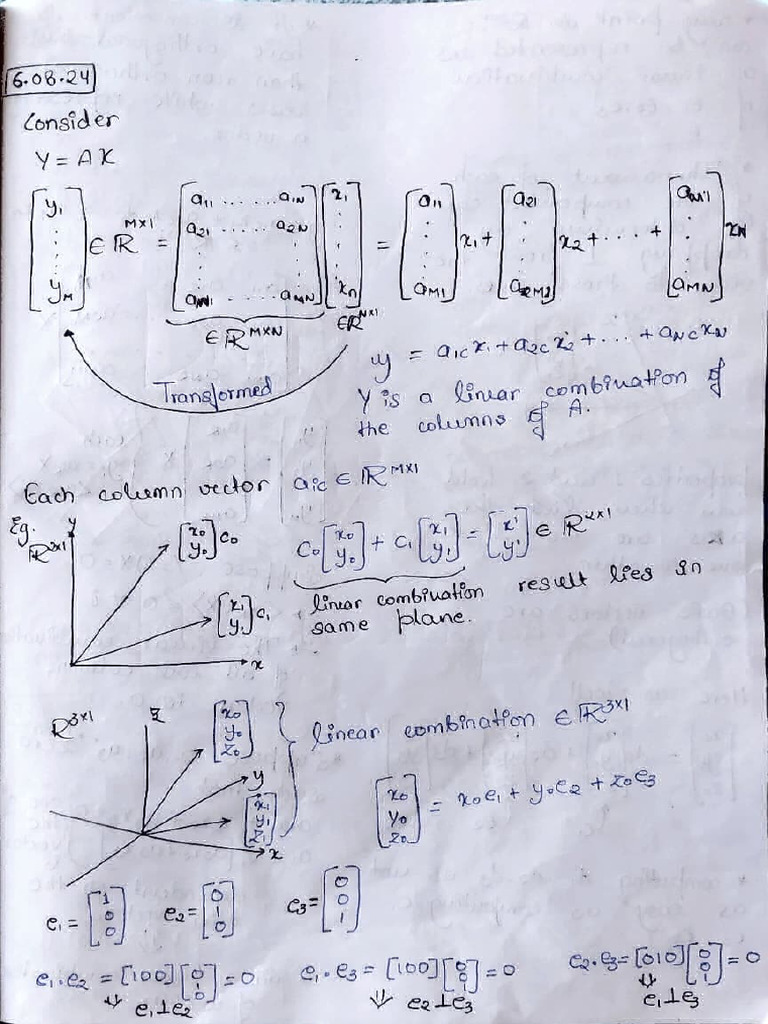 6.08.24
Consider
Y = A X
[y1 : : yM] ∈ ℝ^{M×1} = [a11 ...... a1N a21 ...... a2N : : aM1 ...... aMN] [x1 : : xn] = [a11 : : aM1] x1 + [a21 : : aM2] x2 + .... + [aM1 : : aMN] xN
∈ ℝ^{M×N} ∈ ℝ^{N×1}
Transformed
y = a1c x1 + a2c x2 + ... + aNc xN
Y is a linear combination of
the columns of A.
Each column vector aic ∈ ℝ^{M×1}
Eg. ℝ^{2×1} y [x0 y0] c0 [x1 y1] c1 x
c0 [x0 y0] + c1 [x1 y1] = [x' y'] ∈ ℝ^{2×1}
linear combination result lies in
same plane.
ℝ^{3×1} z [x0 y0 z0] y [x1 y1 z1] x
linear combination ∈ ℝ^{3×1}
[x0 y0 z0] = x0e1 + y0e2 + z0e3
e1 = [1 0 0] e2 = [0 1 0] e3 = [0 0 1]
e1.e2 = [100] [0 1 0] = 0 e1.e3 = [100] [0 0 1] = 0 e2.e3 = [010] [0 0 1] = 0
⇓ e1⊥e2 ⇓ e2⊥e3 ⇓ e1⊥e3